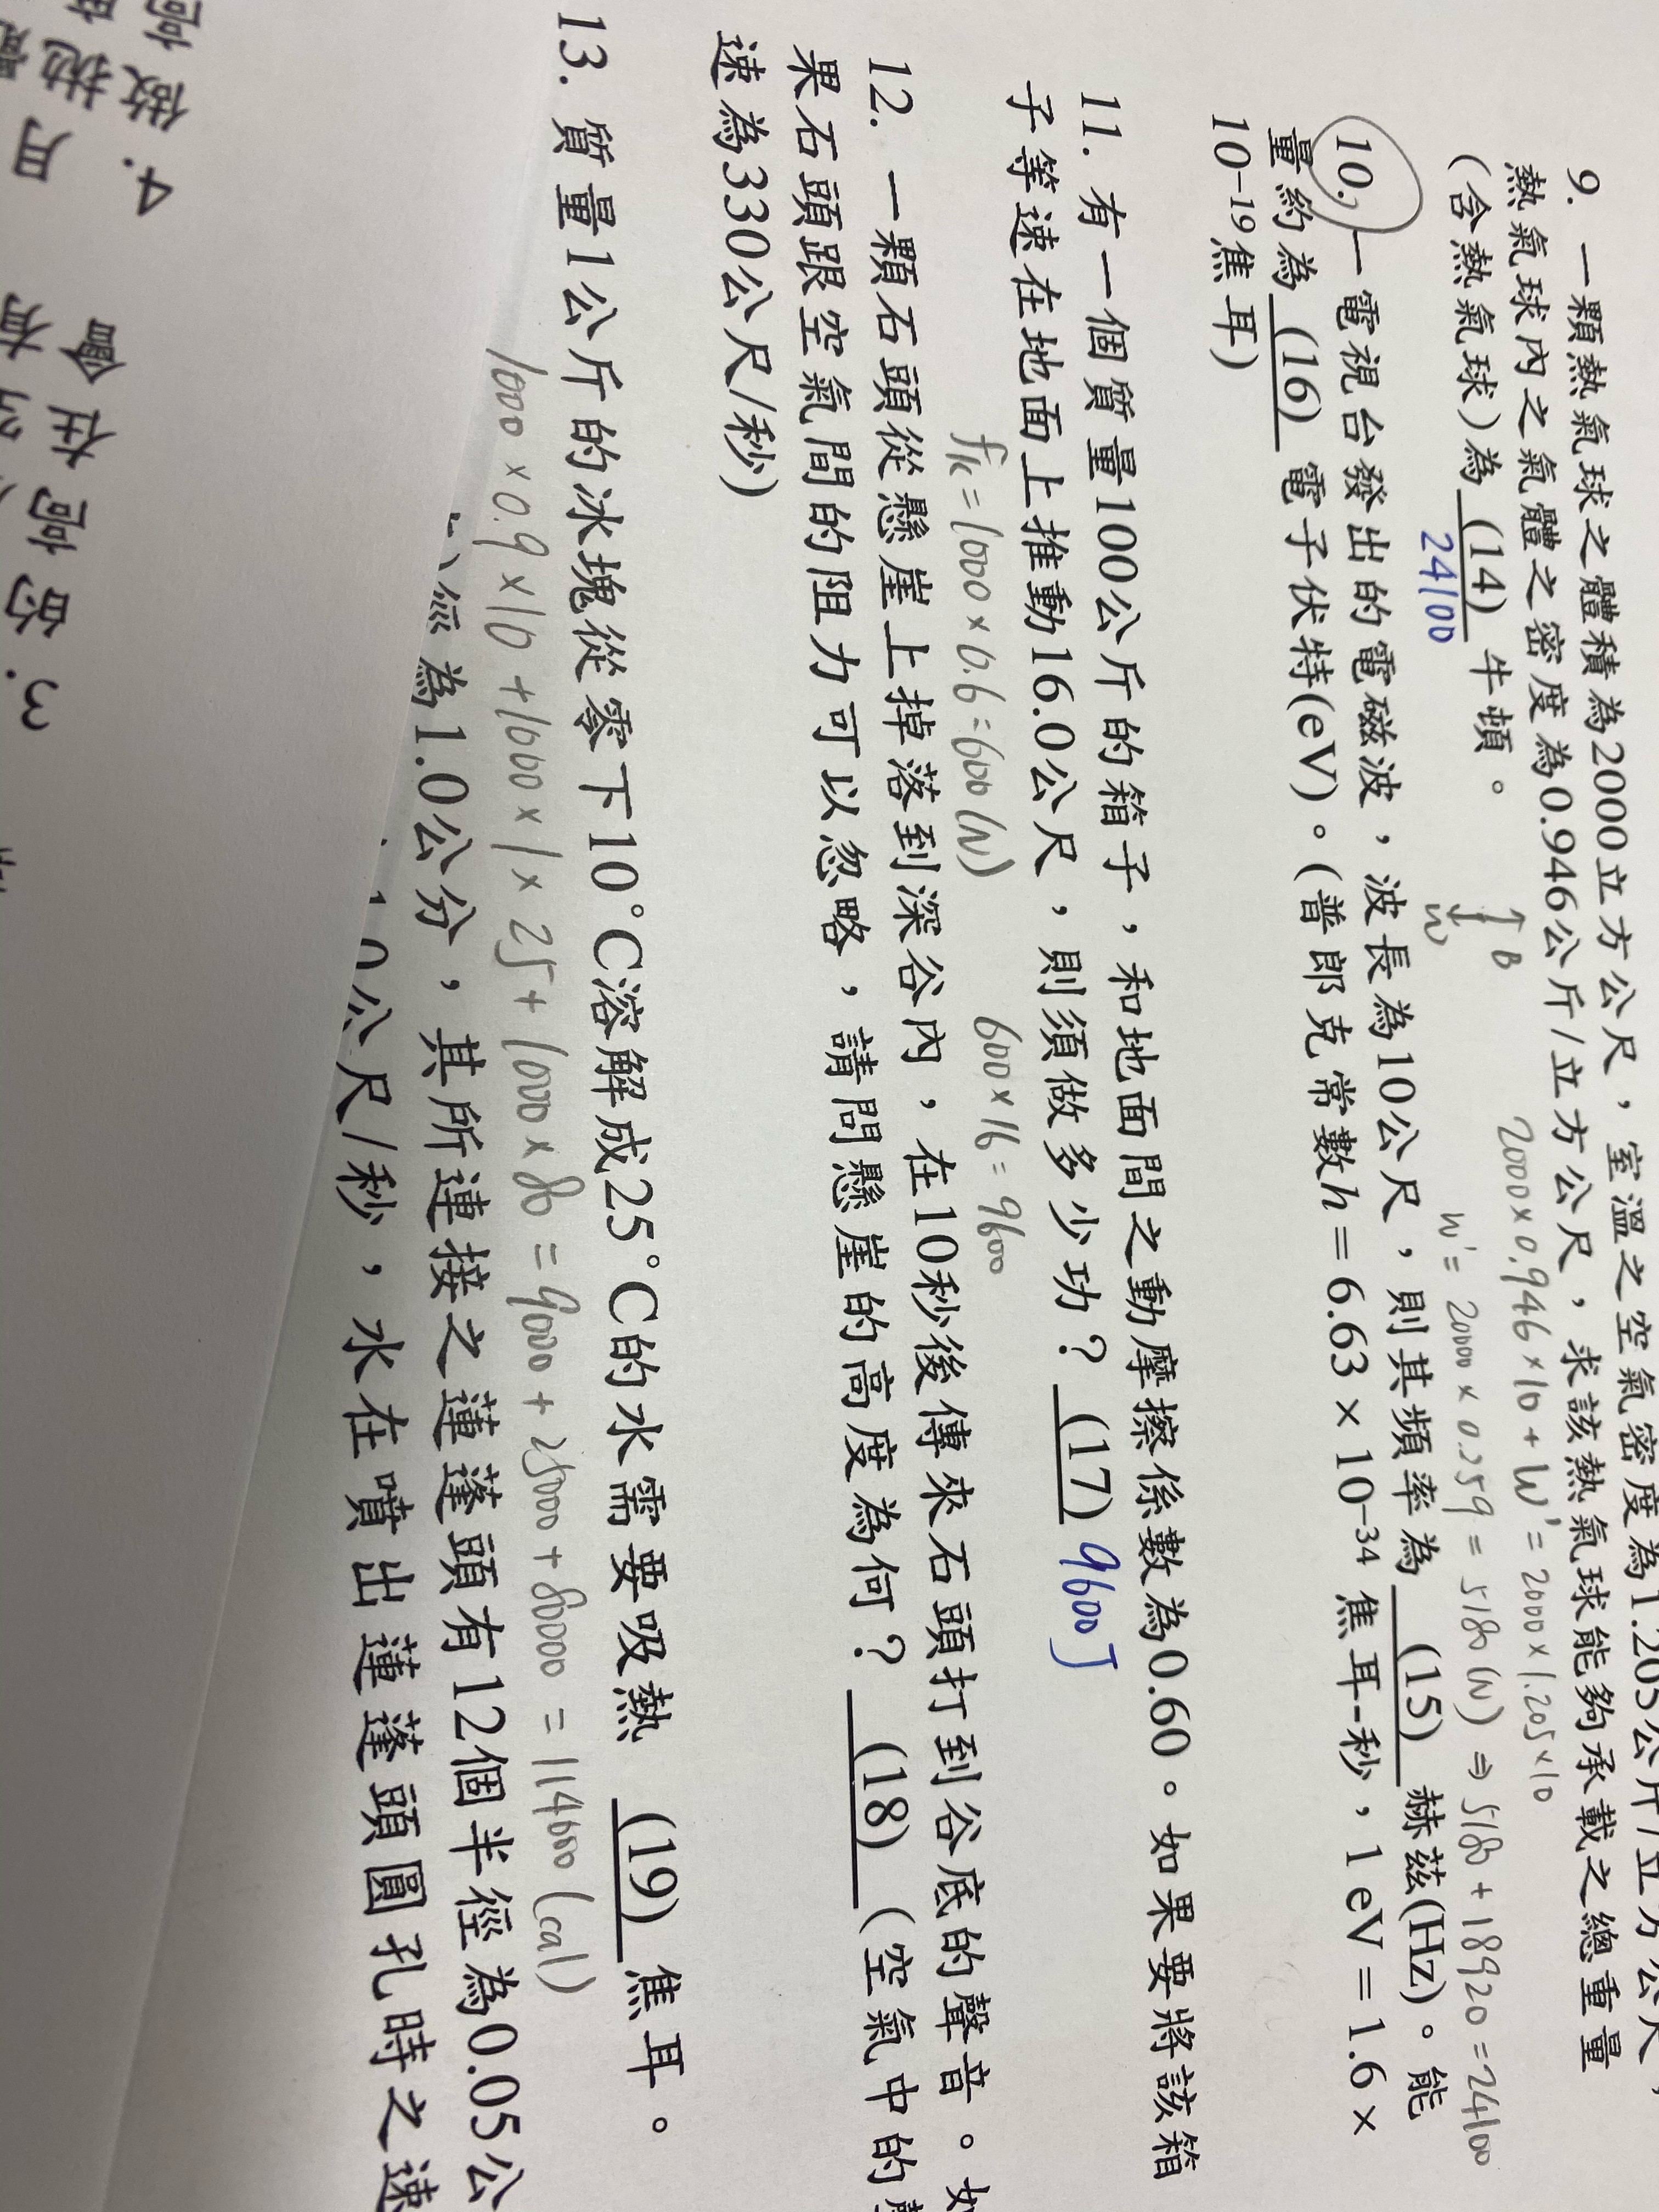 9. 一顆熱氣球之體積為2000立方公尺，室溫之空氣密度為1.205公斤/立方公尺，
熱氣球內之氣體之密度為0.946公斤/立方公尺，求該熱氣球能夠承載之總重量
(含熱氣球)為 (14) 牛頓。
24100
↑B
↓W
2000×0.946×10+W'=2000×1.205×10
W'=20000×0.259=5180(N)⇒5180+18920=24100
10. 一電視台發出的電磁波，波長為10公尺，則其頻率為 (15) 赫茲(Hz)。能
量約為 (16) 電子伏特(eV)。(普郎克常數h=6.63×10⁻³⁴ 焦耳-秒，1 eV=1.6×
10⁻¹⁹焦耳)
11. 有一個質量100公斤的箱子，和地面間之動摩擦係數為0.60。如果要將該箱
子等速在地面上推動16.0公尺，則須做多少功？ (17) 9600J
fk=1000×0.6=600(N)
600×16=9600
12. 一顆石頭從懸崖上掉落到深谷內，在10秒後傳來石頭打到谷底的聲音。如
果石頭跟空氣間的阻力可以忽略，請問懸崖的高度為何？ (18) (空氣中的
速為330公尺/秒)
13. 質量1公斤的冰塊從零下10°C溶解成25°C的水需要吸熱 (19) 焦耳。
1000×0.9×10+1000×1×25+1000×80=9000+25000+80000=114000(cal)
徑為1.0公分，其所連接之蓮蓬頭有12個半徑為0.05公
0公尺/秒，水在噴出蓮蓬頭圓孔時之速
4. 做
月 拋
3. 的
在 會